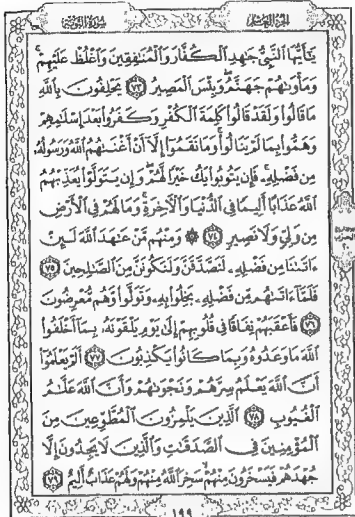 الجزء العاشر
سورة التوبة
يَٰٓأَيُّهَا ٱلنَّبِيُّ جَٰهِدِ ٱلۡكُفَّارَ وَٱلۡمُنَٰفِقِينَ وَٱغۡلُظۡ عَلَيۡهِمۡۚ
وَمَأۡوَىٰهُمۡ جَهَنَّمُۖ وَبِئۡسَ ٱلۡمَصِيرُ ٧٣ يَحۡلِفُونَ بِٱللَّهِ
مَا قَالُواْ وَلَقَدۡ قَالُواْ كَلِمَةَ ٱلۡكُفۡرِ وَكَفَرُواْ بَعۡدَ إِسۡلَٰمِهِمۡ
وَهَمُّواْ بِمَا لَمۡ يَنَالُواْۚ وَمَا نَقَمُوٓاْ إِلَّآ أَنۡ أَغۡنَىٰهُمُ ٱللَّهُ وَرَسُولُهُۥ
مِن فَضۡلِهِۦۚ فَإِن يَتُوبُواْ يَكُ خَيۡرٗا لَّهُمۡۖ وَإِن يَتَوَلَّوۡاْ يُعَذِّبۡهُمُ
ٱللَّهُ عَذَابًا أَلِيمٗا فِي ٱلدُّنۡيَا وَٱلۡأٓخِرَةِۚ وَمَا لَهُمۡ فِي ٱلۡأَرۡضِ
مِن وَلِيّٖ وَلَا نَصِيرٖ ٧٤ ۞ وَمِنۡهُم مَّنۡ عَٰهَدَ ٱللَّهَ لَئِنۡ
ءَاتَىٰنَا مِن فَضۡلِهِۦ لَنَصَّدَّقَنَّ وَلَنَكُونَنَّ مِنَ ٱلصَّٰلِحِينَ ٧٥
فَلَمَّآ ءَاتَىٰهُم مِّن فَضۡلِهِۦ بَخِلُواْ بِهِۦ وَتَوَلَّواْ وَّهُم مُّعۡرِضُونَ
٧٦ فَأَعۡقَبَهُمۡ نِفَاقٗا فِي قُلُوبِهِمۡ إِلَىٰ يَوۡمِ يَلۡقَوۡنَهُۥ بِمَآ أَخۡلَفُواْ
ٱللَّهَ مَا وَعَدُوهُ وَبِمَا كَانُواْ يَكۡذِبُونَ ٧٧ أَلَمۡ يَعۡلَمُوٓاْ
أَنَّ ٱللَّهَ يَعۡلَمُ سِرَّهُمۡ وَنَجۡوَىٰهُمۡ وَأَنَّ ٱللَّهَ عَلَّٰمُ
ٱلۡغُيُوبِ ٧٨ ٱلَّذِينَ يَلۡمِزُونَ ٱلۡمُطَّوِّعِينَ مِنَ
ٱلۡمُؤۡمِنِينَ فِي ٱلصَّدَقَٰتِ وَٱلَّذِينَ لَا يَجِدُونَ إِلَّا
جُهۡدَهُمۡ فَيَسۡخَرُونَ مِنۡهُمۡ سَخِرَ ٱللَّهُ مِنۡهُمۡ وَلَهُمۡ عَذَابٌ أَلِيمٌ ٧٩
١٩٩